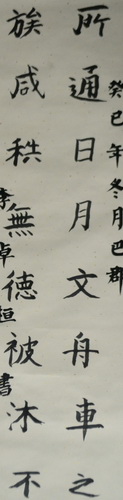 所通日月文舟車之
族咸秩無德被沐不
癸巳年冬月巴郡
李卓恒書